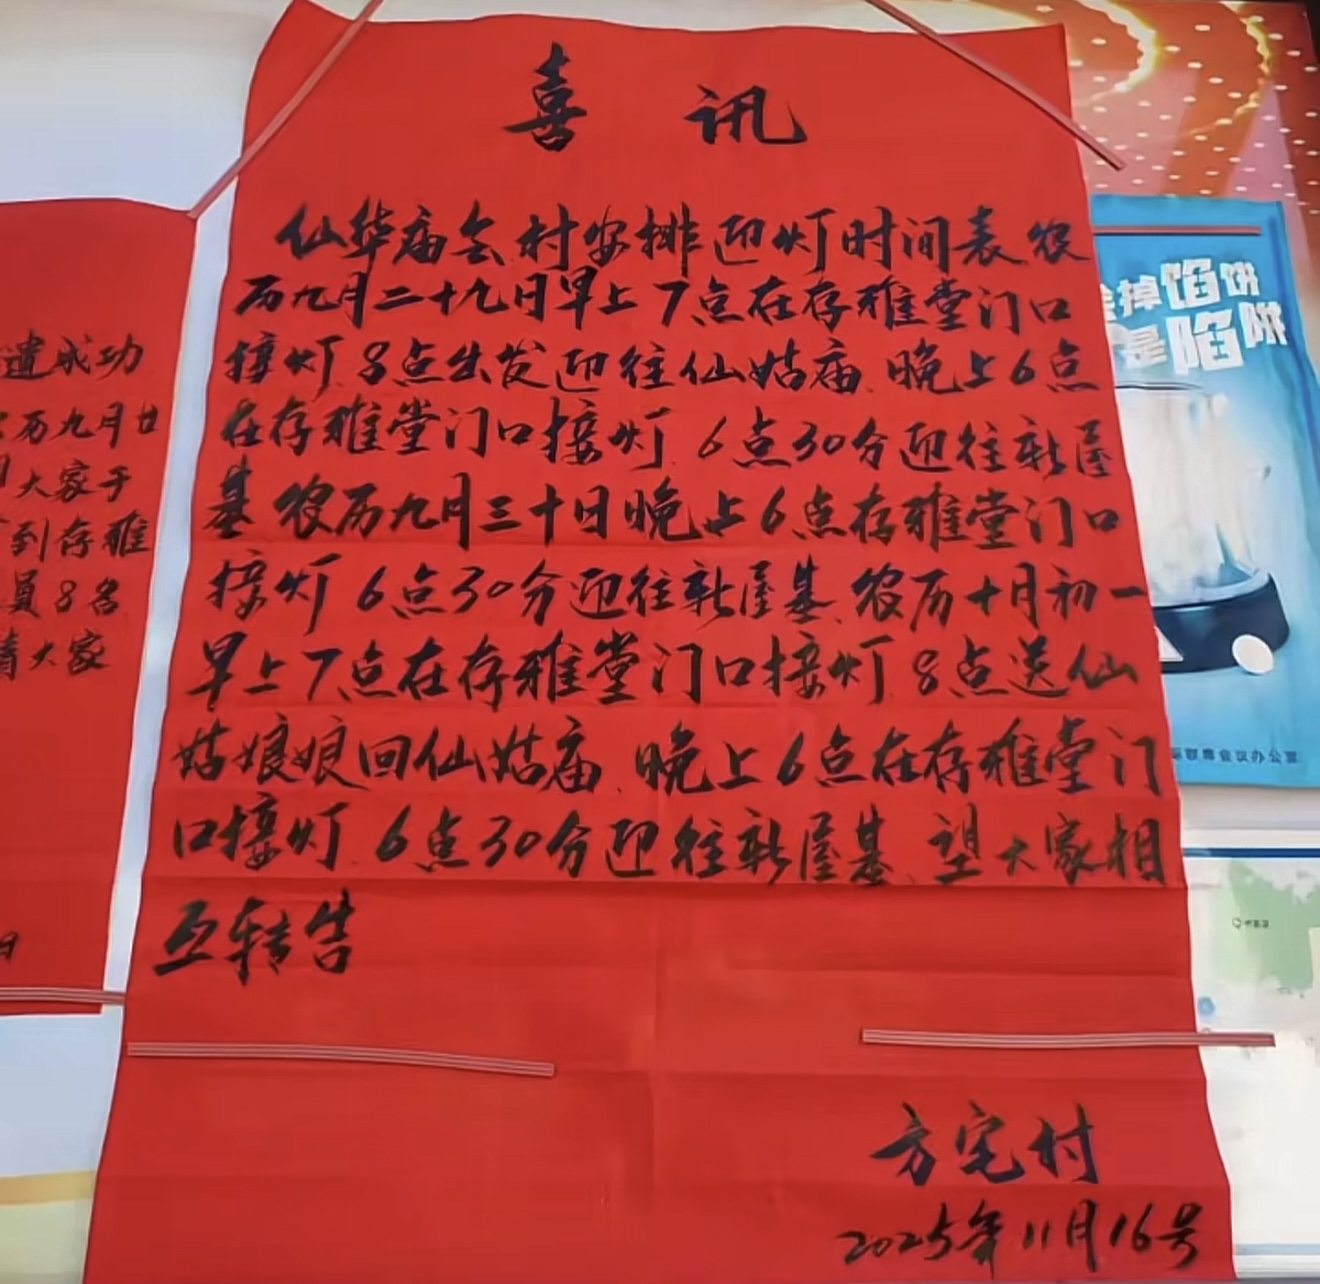 喜讯
仙华庙会村安排迎灯时间表农
历九月二十九日早上7点在存雅堂门口
接灯8点出发迎往仙姑庙、晚上6点
在存雅堂门口接灯、6点30分迎往新屋
基农历九月三十日晚上6点存雅堂门口
接灯6点30分迎往新屋基、农历十月初一
早上7点在存雅堂门口接灯、8点送仙
姑娘娘回仙姑庙、晚上6点在存雅堂门
口接灯、6点30分迎往新屋基、望大家相
互转告
方宅村
2025年11月16号
遗成功
历九月廿
大家于
到存雅
员8名
请大家
日
掉馅饼
是陷阱
联席会议办公室